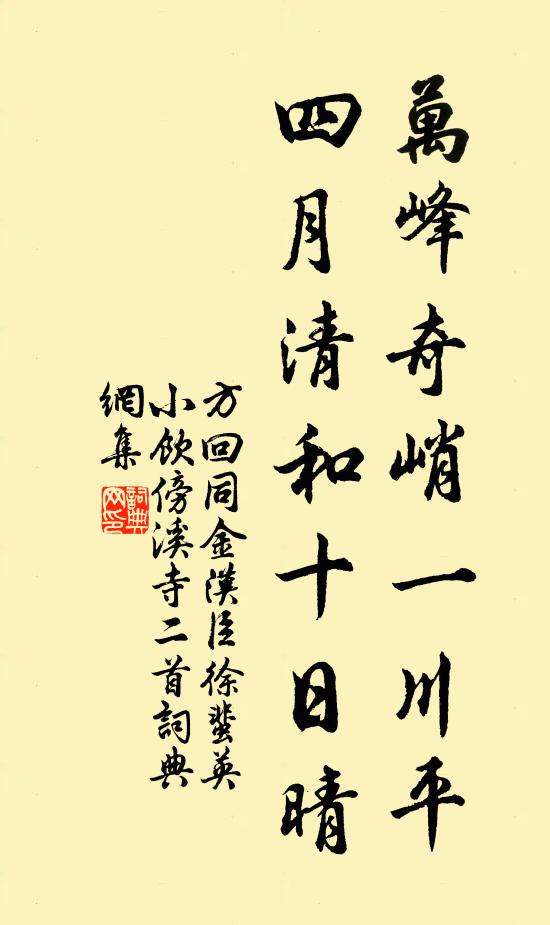 萬峰奇峭一川平
四月清和十日晴
方回同金漢臣徐蜚英
小飲傍溪寺二首詞典
網集
詞典
网印